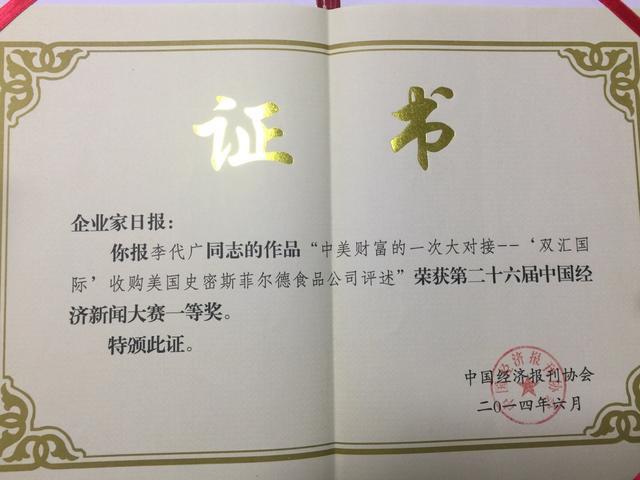 证书
企业家日报：
你报李代广同志的作品“中美财富的一次大对接--‘双汇国
际’收购美国史密斯菲尔德食品公司评述”荣获第二十六届中国经
济新闻大赛一等奖。
特颁此证。
中国经济报刊协会
二〇一四年六月
中国经济报刊协会